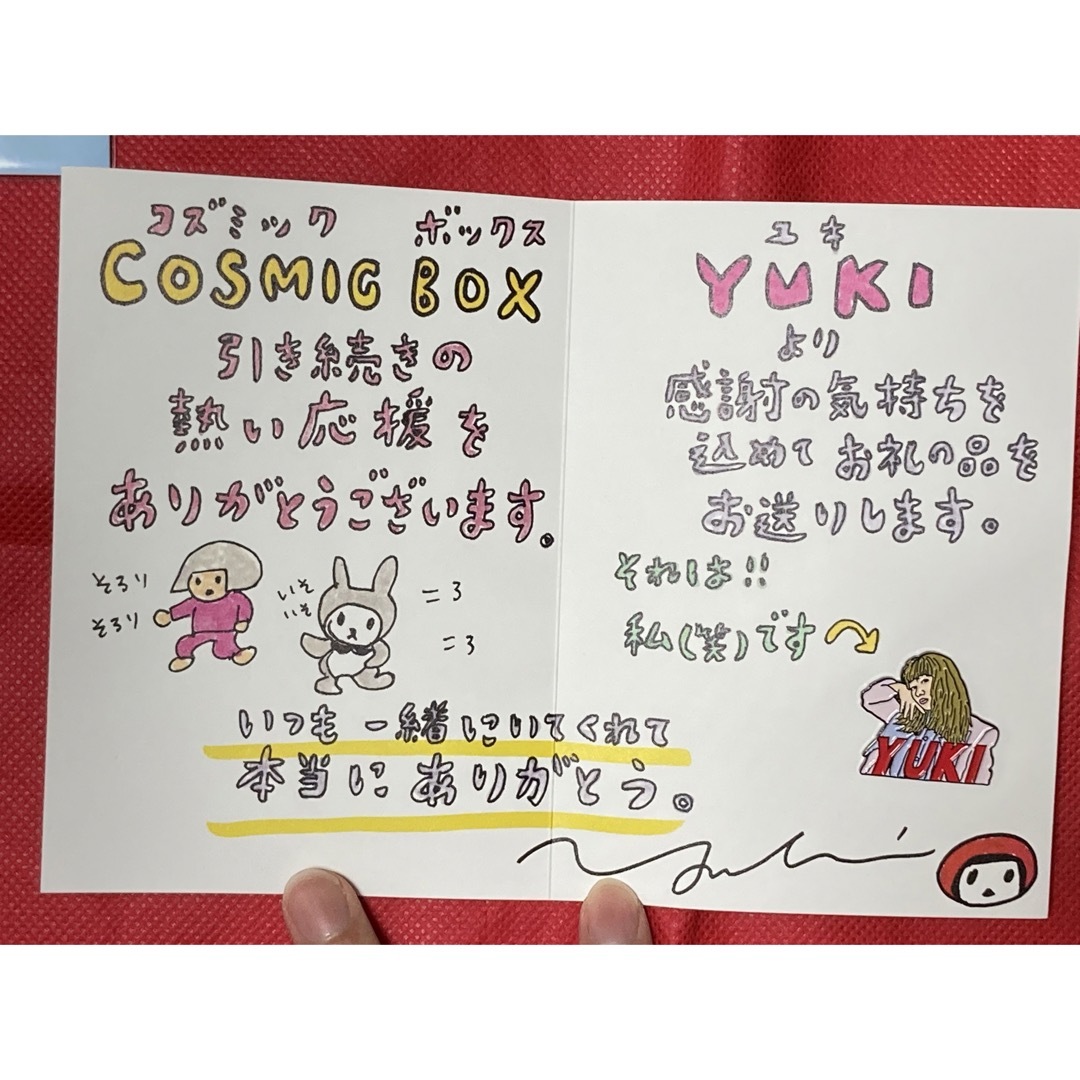 コズミック ボックス
COSMIC BOX
引き続きの
熱い応援を
ありがとうございます。
そろり
そろり
いそ
いそ
=3
=3
ユキ
YUKI
より
感謝の気持ちを
込めてお礼の品を
お送りします。
それは!!
私(笑)です
YUKI
いつも一緒にいてくれて
本当にありがとう。
Yuki